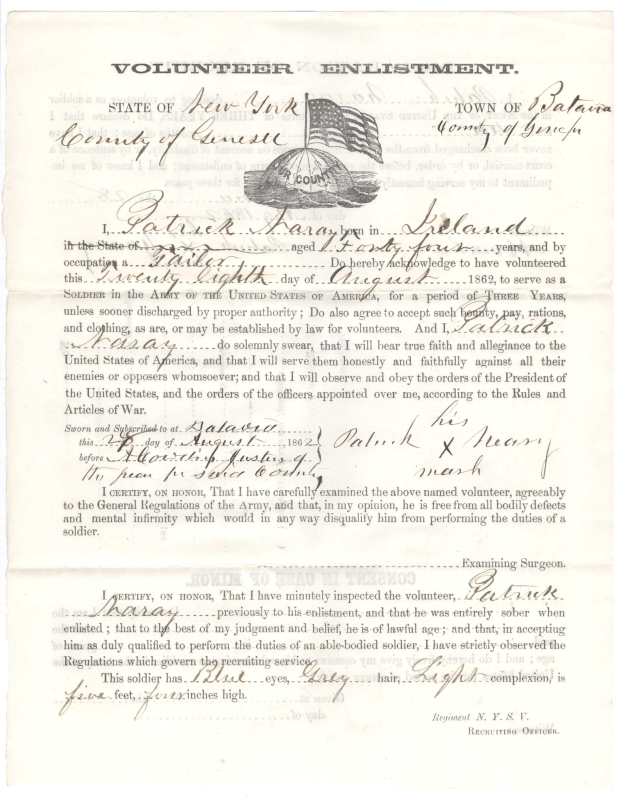 VOLUNTEER ENLISTMENT.
STATE OF New York TOWN OF Batavia
County of Genesee County of Genesee
OUR COUNTRY
I, Patrick Naray born in Ireland
in the State of aged Forty four years, and by
occupation a Tailor Do hereby acknowledge to have volunteered
this Twenty Eighth day of August 1862, to serve as a
SOLDIER IN THE ARMY OF THE UNITED STATES OF AMERICA, for a period of THREE YEARS,
unless sooner discharged by proper authority; Do also agree to accept such bounty, pay, rations,
and clothing, as are, or may be established by law for volunteers. And I, Patrick
Naray do solemnly swear, that I will bear true faith and allegiance to the
United States of America, and that I will serve them honestly and faithfully against all their
enemies or opposers whomsoever; and that I will observe and obey the orders of the President of
the United States, and the orders of the officers appointed over me, according to the Rules and
Articles of War.
Sworn and Subscribed to at Batavia
this 28 day of August 1862
before Justice of
the peace said County
his
Patrick X Neary
mark
I CERTIFY, ON HONOR, That I have carefully examined the above named volunteer, agreeably
to the General Regulations of the Army, and that, in my opinion, he is free from all bodily defects
and mental infirmity which would in any way disqualify him from performing the duties of a
soldier.
Examining Surgeon.
I CERTIFY, ON HONOR, That I have minutely inspected the volunteer, Patrick
Naray previously to his enlistment, and that he was entirely sober when
enlisted; that to the best of my judgment and belief, he is of lawful age; and that, in accepting
him as duly qualified to perform the duties of an able-bodied soldier, I have strictly observed the
Regulations which govern the recruiting service.
This soldier has Blue eyes, Grey hair, Light complexion, is
five feet, four inches high.
Regiment N. Y. S. V.
RECRUITING OFFICER.